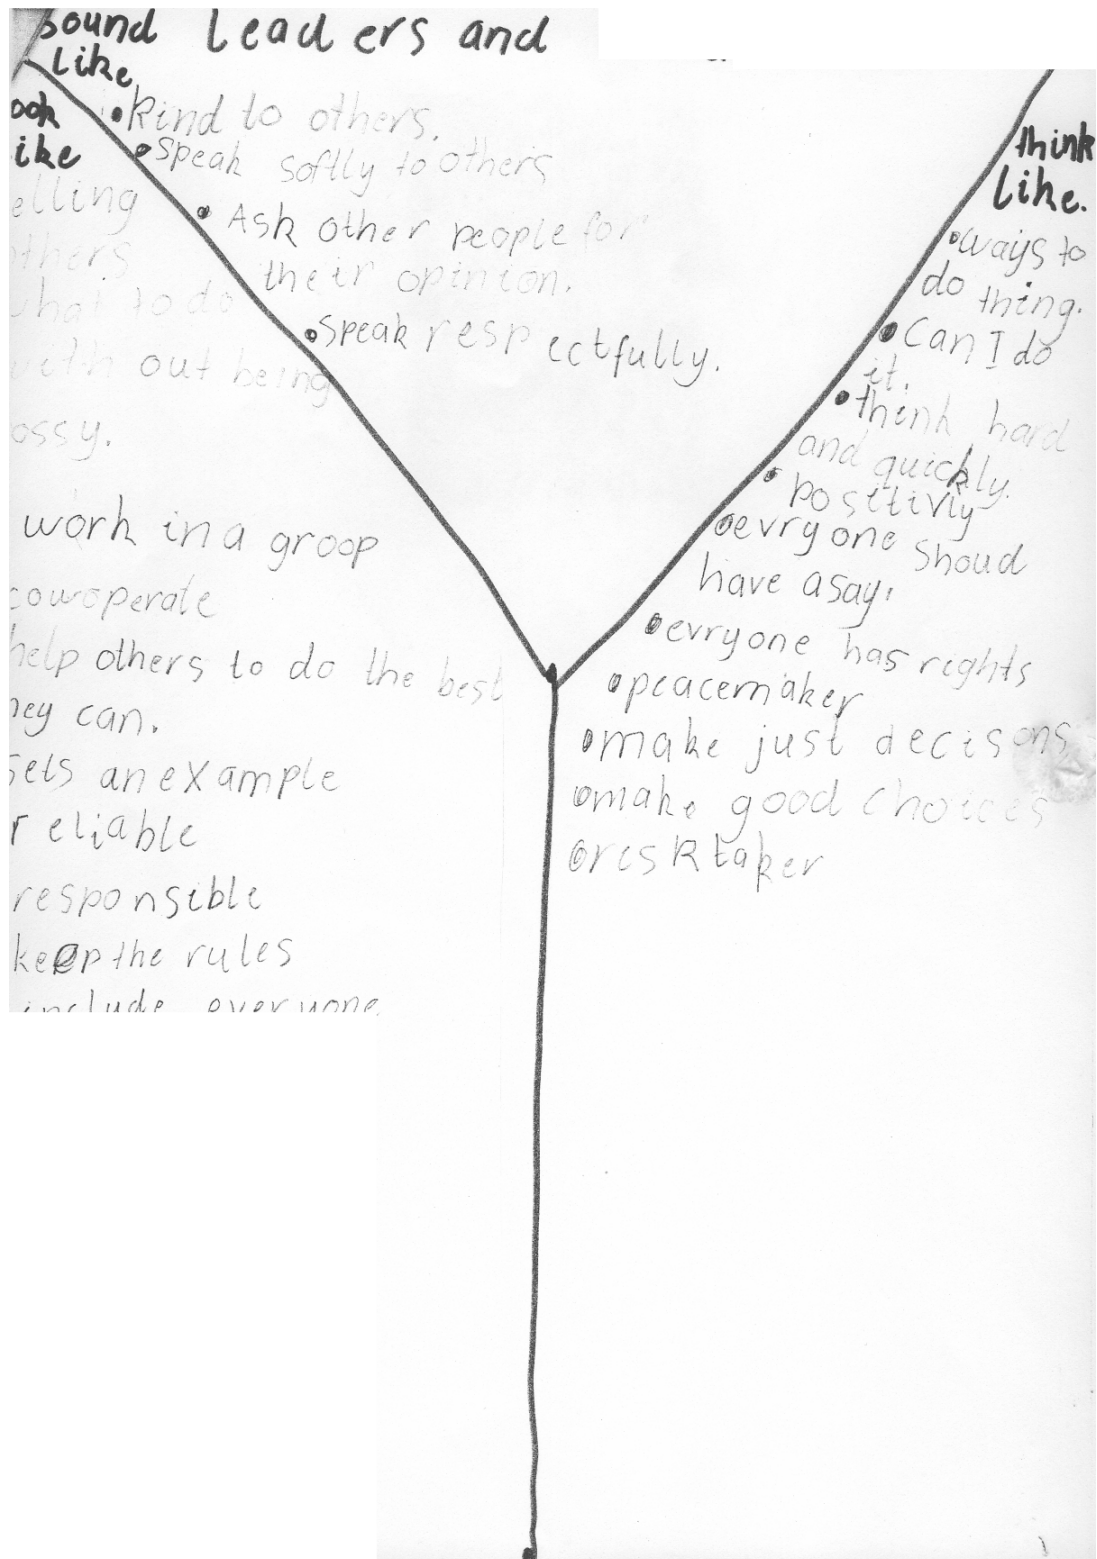 sound leaders and
like
• kind to others.
• speak softly to others
• Ask other people for
their opinion.
• speak respectfully.
ook
ike
elling
thers
what to do
with out being
ossy.
work in a groop
cowoperate
help others to do the best
hey can.
sets an example
reliable
responsible
keep the rules
include everyone
think
like.
• ways to
do thing.
• can I do
it.
• think hard
and quickly.
• positivly
• evryone shoud
have a say.
• evryone has rights
• peacemaker
• make just decisons
• make good choices
• risk taker